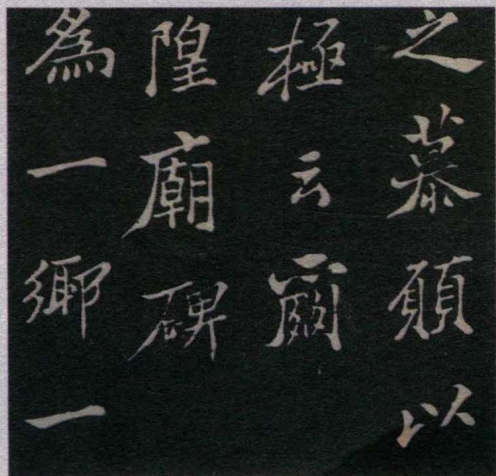 之慕願以
極云爾
隍廟碑
為一鄉一